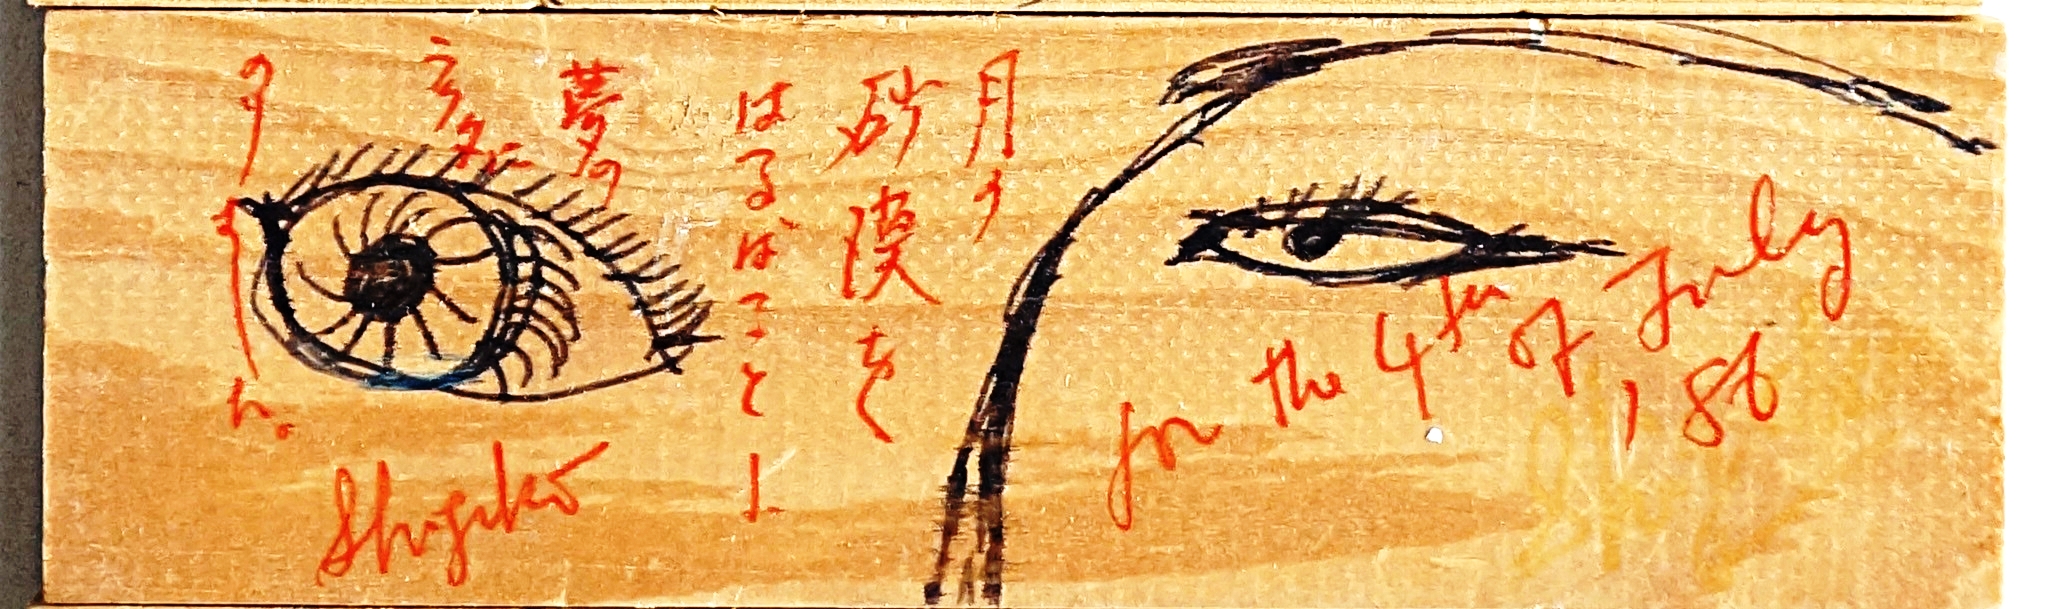 月の
砂漠を
はるばると
夢の
Shigeko
for the 4th of July
, 86